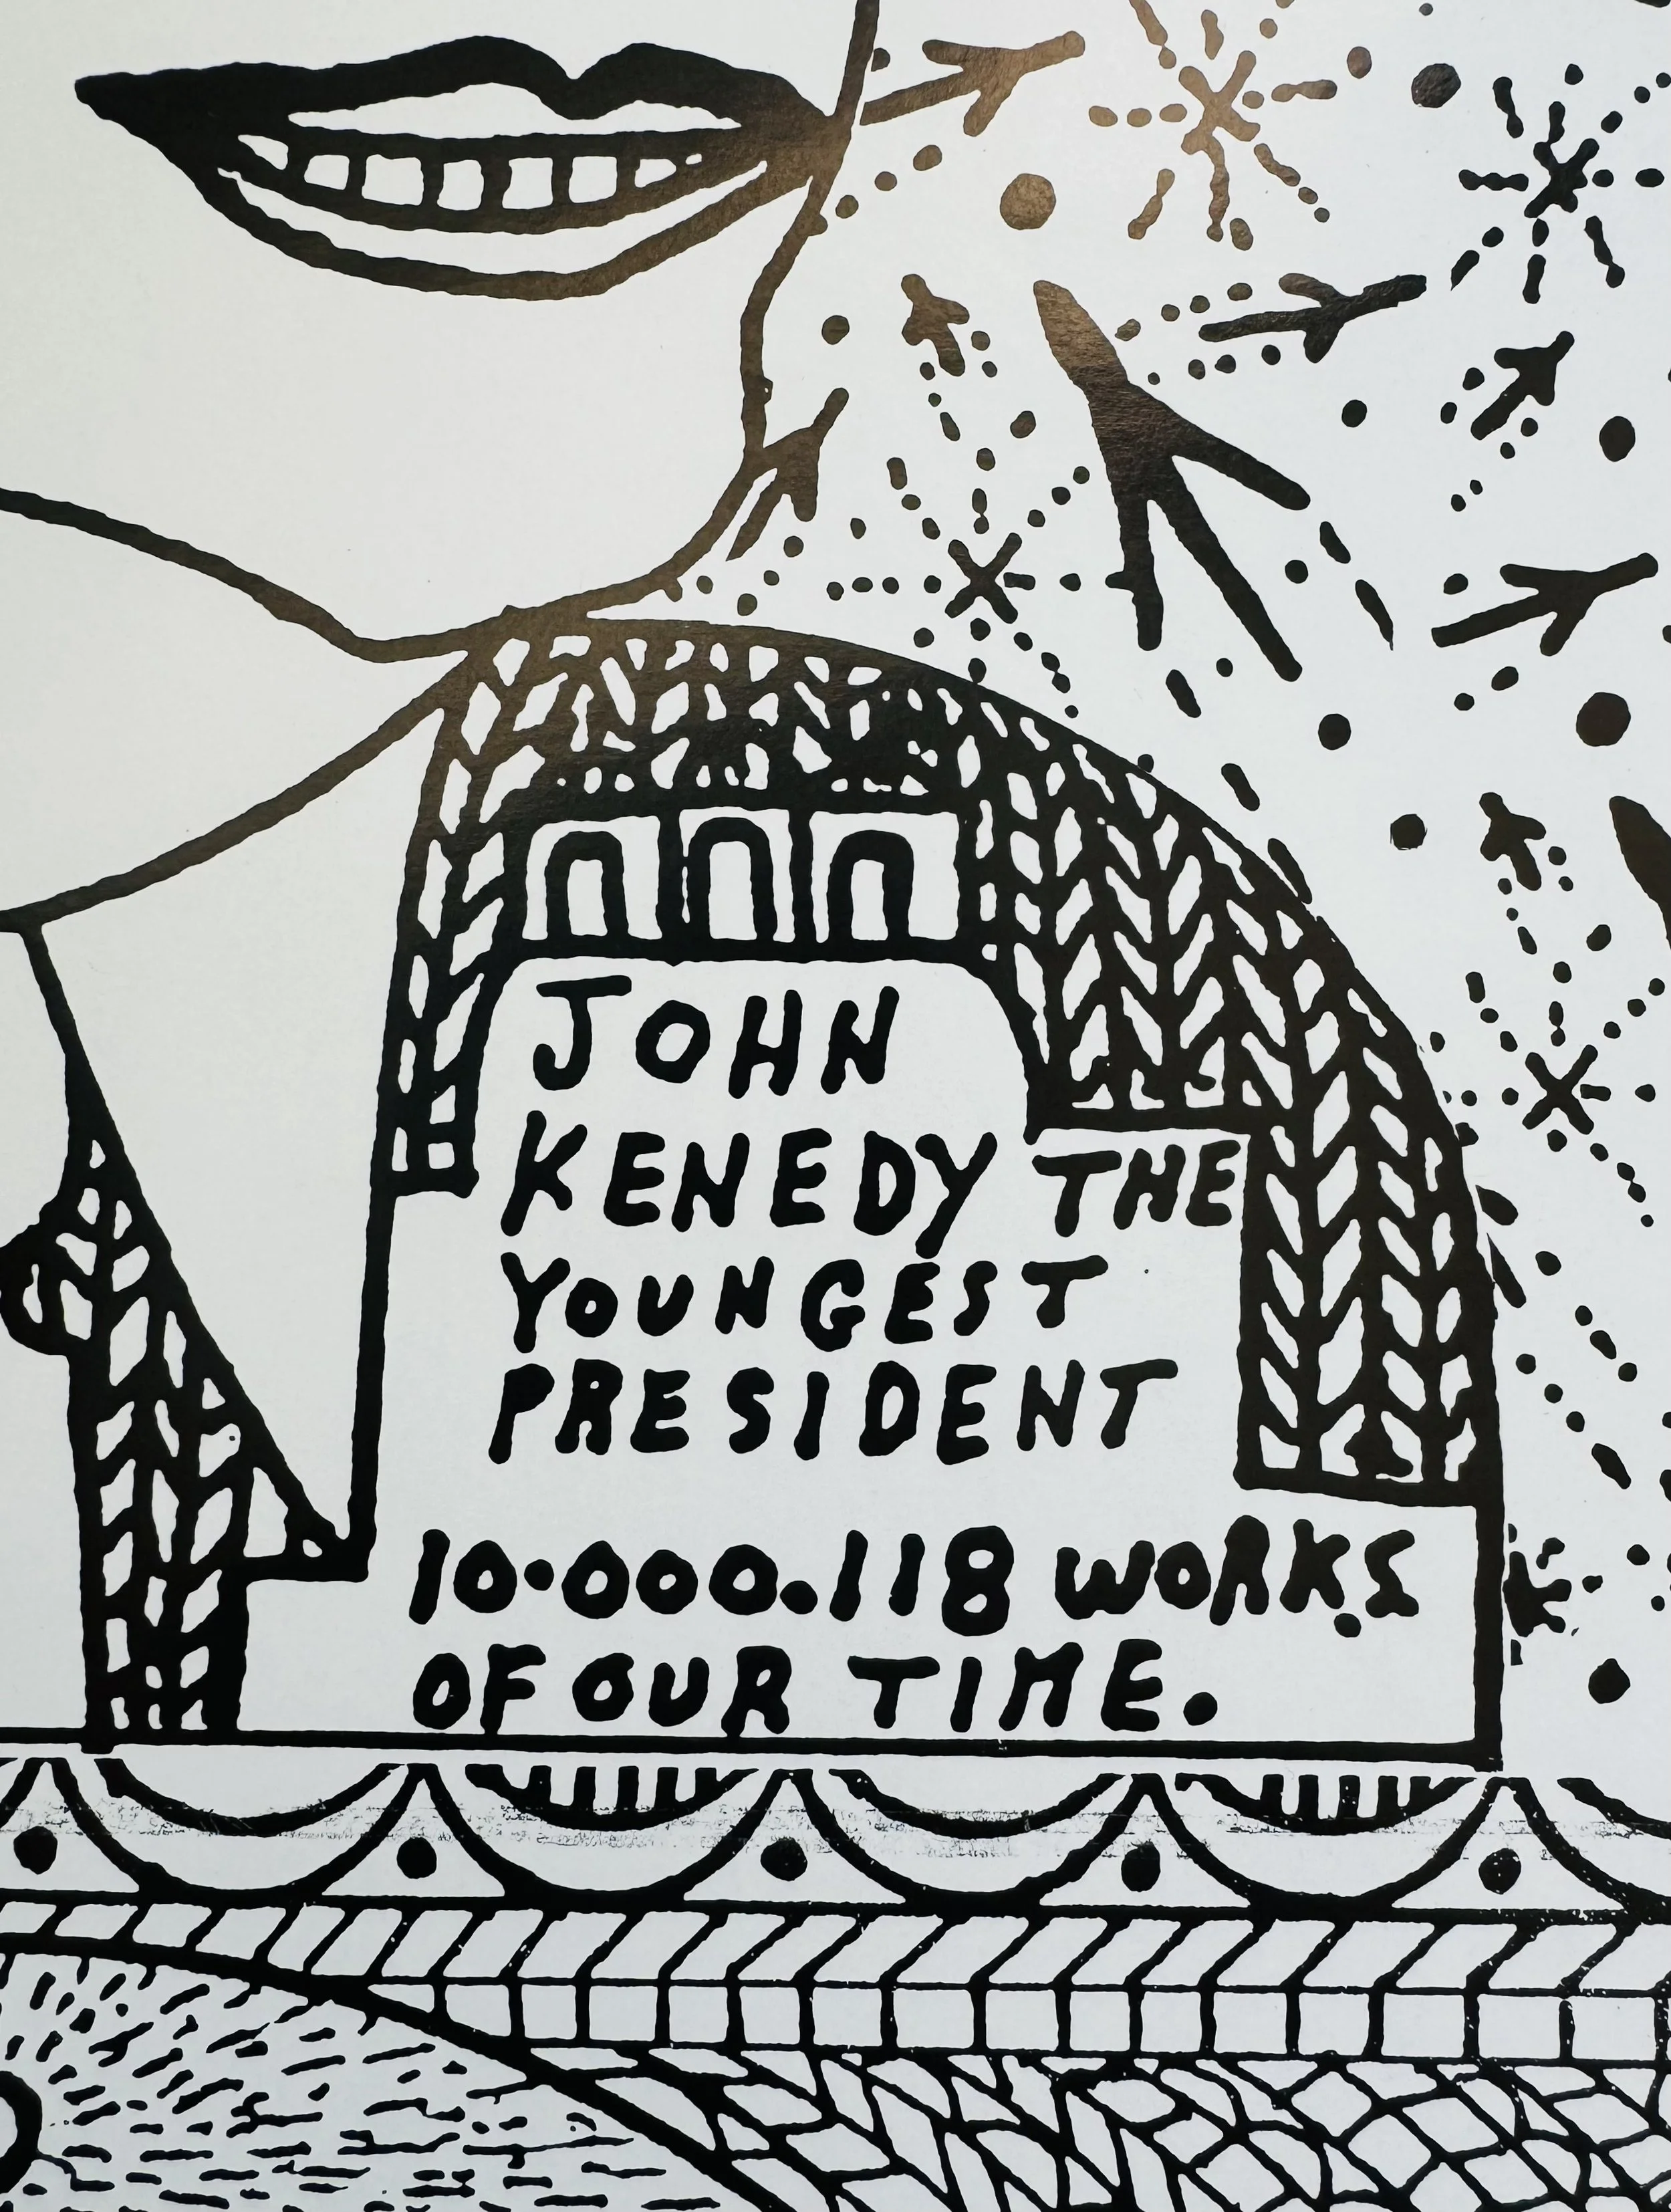 JOHN
KENEDY THE
YOUNGEST
PRESIDENT
10.000.118 WORKS
OF OUR TIME.